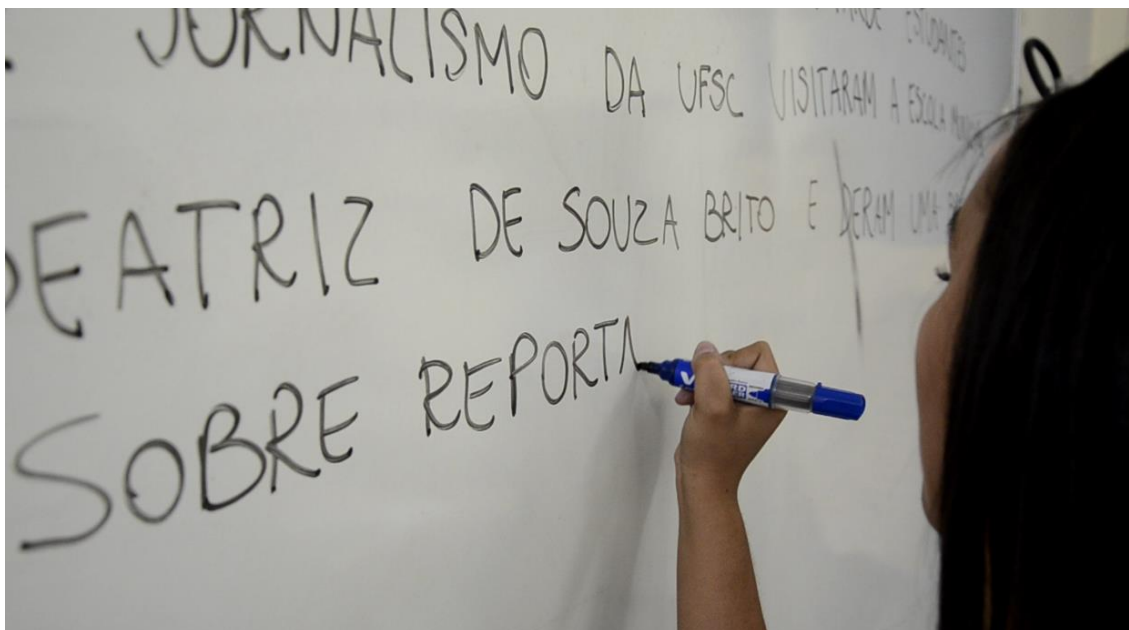 TARDE ESTUDANTES
JORNALISMO DA UFSC VISITARAM A ESCOLA
BEATRIZ DE SOUZA BRITO E DERAM UMA
SOBRE REPORTA